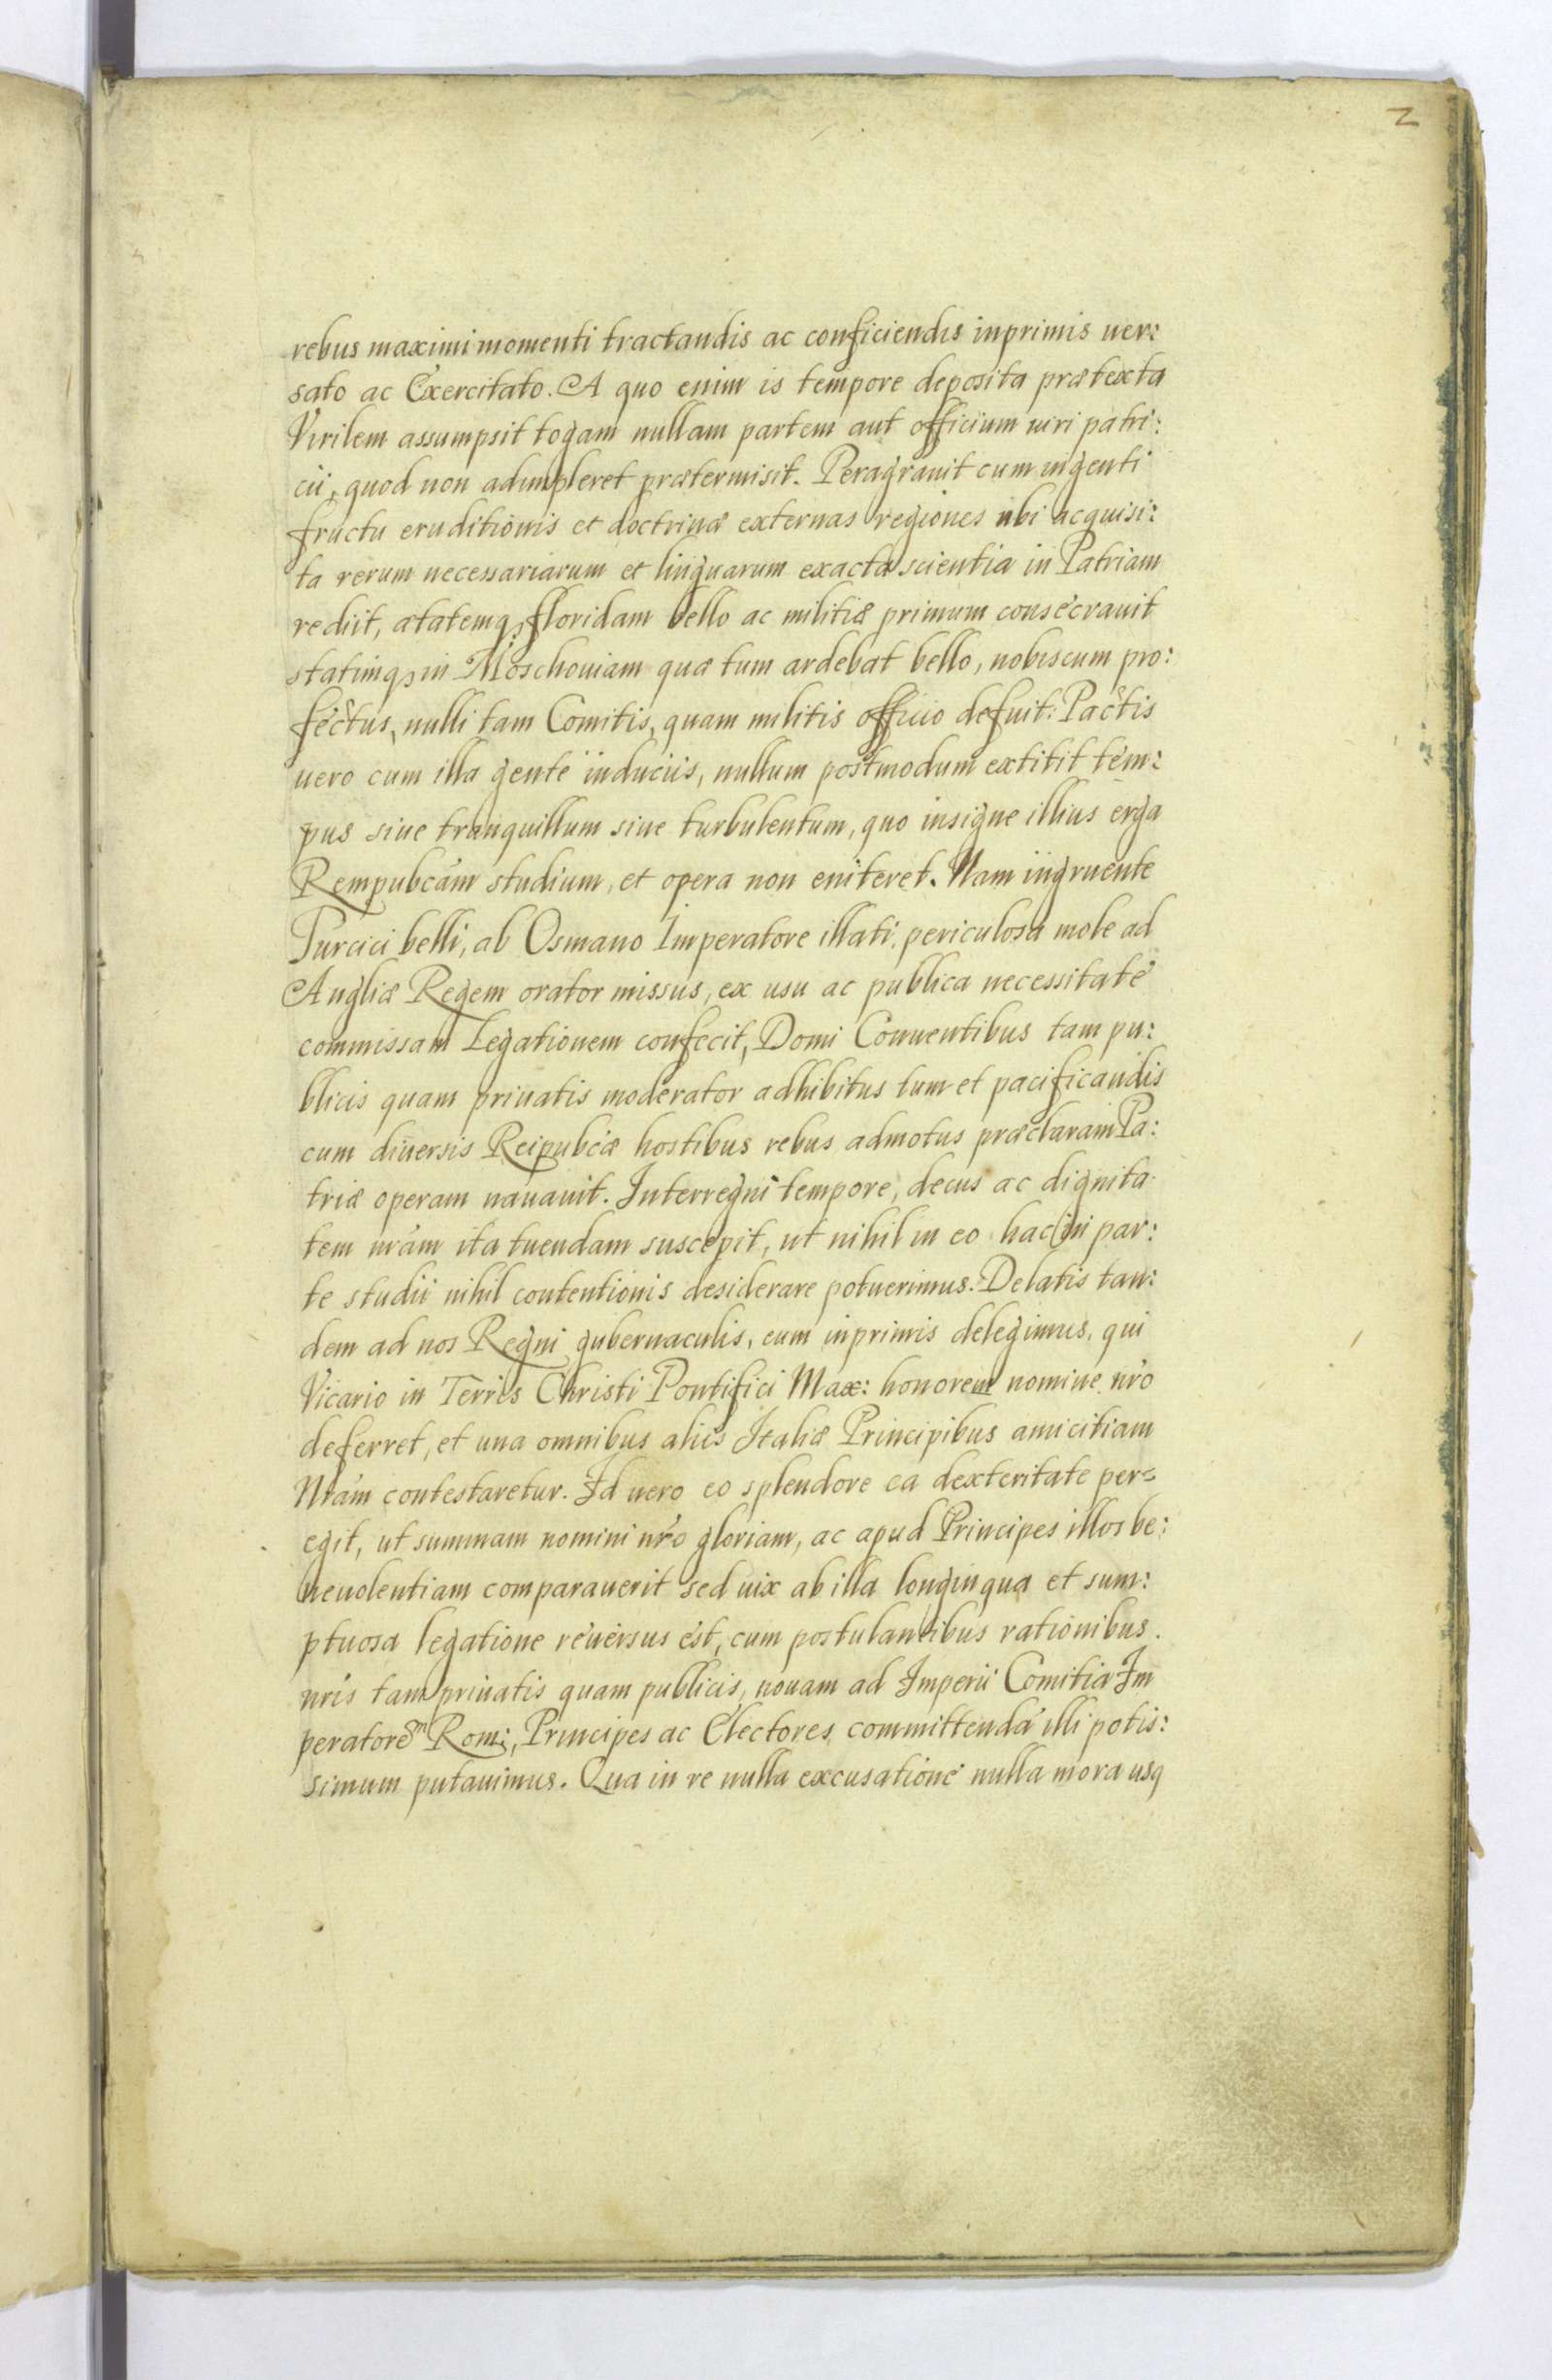 2
rebus maximi momenti tractandis ac conficiendis inprimis uer:
sato ac Exercitato. A quo enim is tempore deposita prætexta
Virilem assumpsit togam nullam partem aut officium uiri patri:
cii, quod non adimpleret prætermisit. Peragrauit cum ingenti
fructu eruditionis et doctrinæ externas regiones ubi acquisi:
ta rerum necessariarum et linguarum exacta scientia in Patriam
rediit, ætatemq; floridam bello ac militiæ primum consecrauit
statimq; in Moschouiam quæ tum ardebat bello, nobiscum pro:
fectus, nulli tam Comitis, quam militis officio defuit. Pactis
uero cum illa gente induciis, nullum postmodum extitit tem:
pus siue tranquillum siue turbulentum, quo insigne illius erga
Rempubcám studium, et opera non eniteret. Nam ingruente
Turcici belli, ab Osmano Imperatore illati, periculosa mole ad
Angliæ Regem orator missus, ex usu ac publica necessitate
commissam Legationem confecit, Domi Conuentibus tam pu:
blicis quam priuatis moderator adhibitus tum et pacificandis
cum diuersis Reipubcæ hostibus rebus admotus præclaram Pa:
triæ operam nauauit. Interregni tempore, decus ac dignita
tem nrám ita tuendam suscepit, ut nihil in eo hac in par:
te studii nihil contentionis desiderare potuerimus. Delatis tan:
dem ad nos Regni gubernaculis, eum inprimis delegimus, qui
Vicario in Terris Christi Pontifici Max: honorem nomine nro
deferret, et una omnibus aliis Italiæ Principibus amicitiam
Nrám contestaretur. Id uero eo splendore ea dexteritate per=
egit, ut summam nomini nro gloriam, ac apud Principes illos be:
neuolentiam comparauerit sed uix ab illa longinqua et sum:
ptuosa legatione reuersus est, cum postulantibus rationibus
nris tam priuatis quam publicis, nouam ad Imperii Comitia Im
peratorem Rom:, Principes ac Electores committendá illi potis:
simum putauimus. Qua in re nulla excusatione nulla mora usq